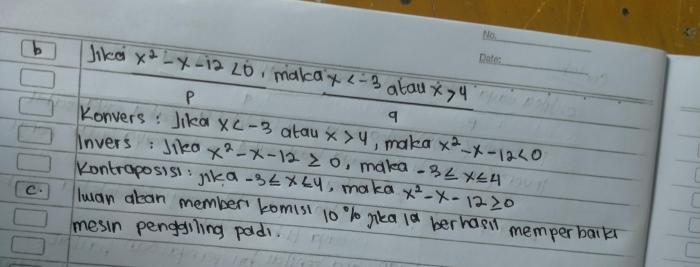 No.
Date:
b Jika x² - x - 12 < 0, maka x < -3 atau x > 4
p q
Konvers : Jika x < -3 atau x > 4, maka x² - x - 12 < 0
Invers : Jika x² - x - 12 ≥ 0, maka -3 ≤ x ≤ 4
Kontraposisi : jika -3 ≤ x ≤ 4, maka x² - x - 12 ≥ 0
c. Iwan akan memberi komisi 10% jika ia berhasil memperbaiki
mesin penggiling padi.